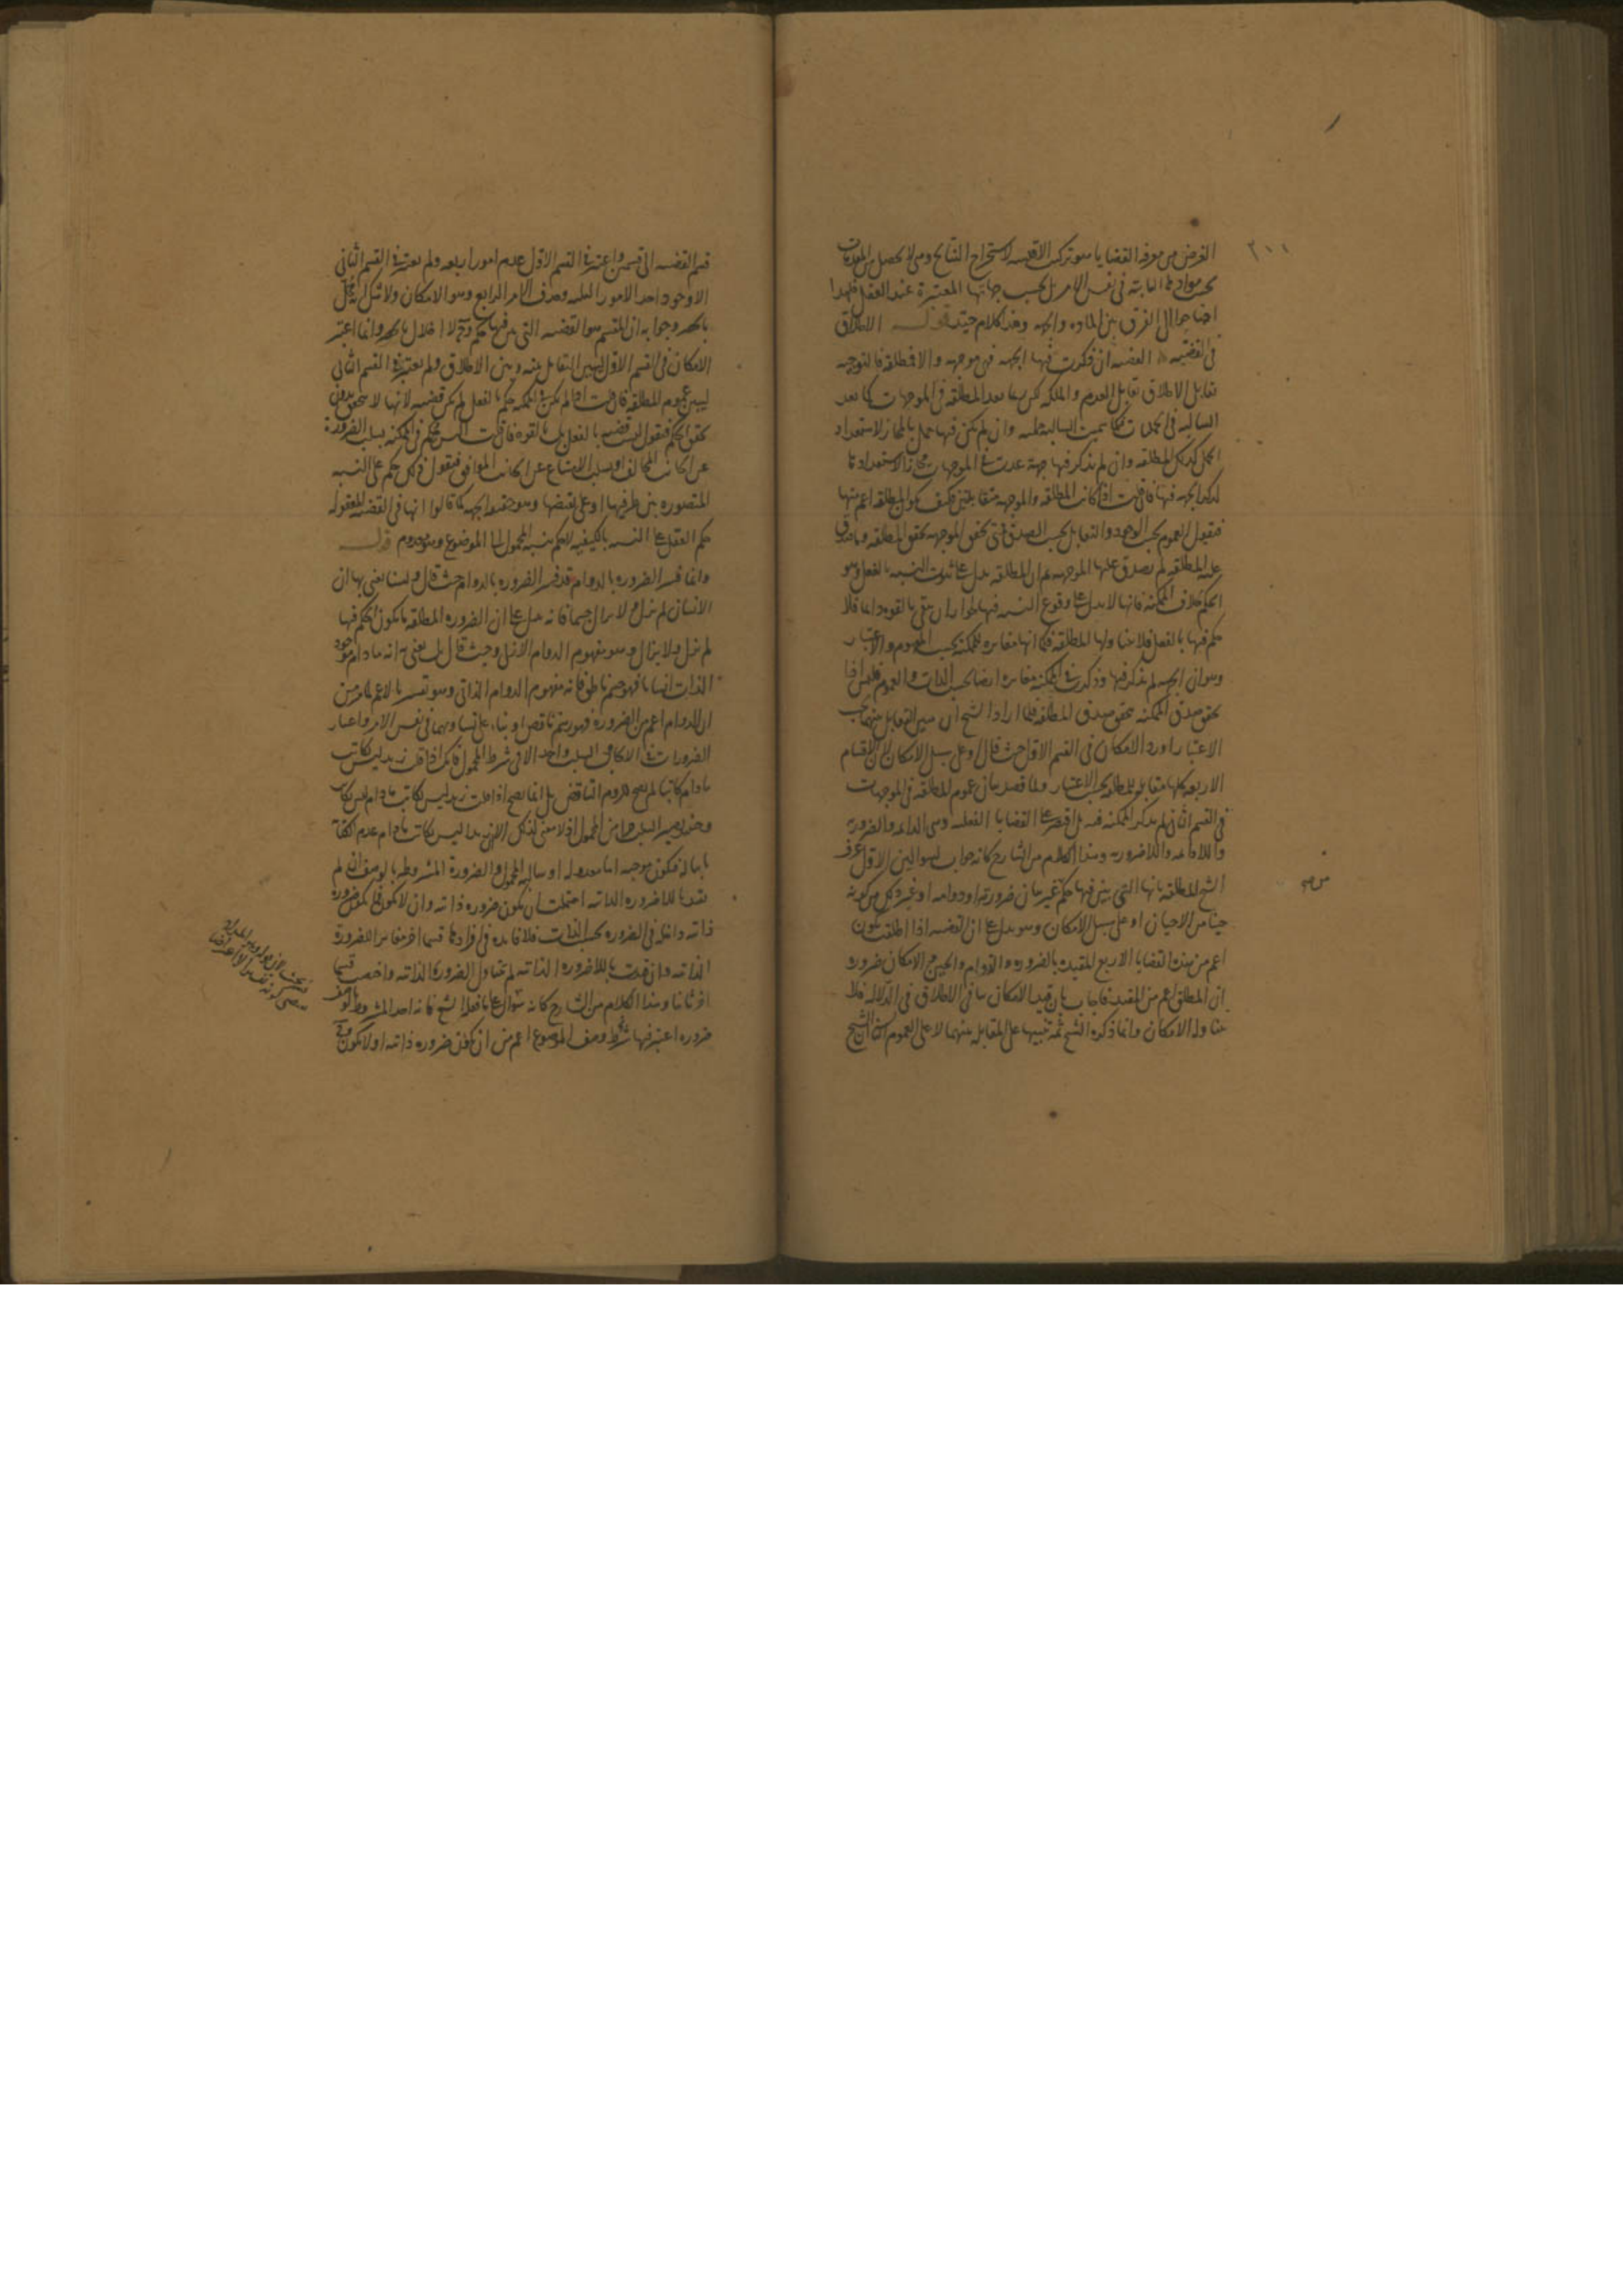 ٢٠١
الغرض من معرفة القضايا هو تركيب الاقيسه لاستخراج النتائج وهى لا تحصل من المقدمات
بحسب موادها الثابته فى نفس الامر بل بحسب جهاتها المعتبرة عند العقل فلهذا
احتاجوا الى الفرق بين الماده والجهه وهذا كلام جيد قوله الاطلاق
فى القضيه القضيه ان ذكرت فيها الجهه فهى موجهه والا فمطلقه فالتوجيه
تقابل الاطلاق تقابل العدم والملكه لكن ربما تعد المطلقه فى الموجهات كما تعد
السالبه فى الحمليات فكما سميت السالبه حمليه وان لم يكن فيها حمل بالمجاز لاستعداد
الحمل كذلك المطلقه وان لم يذكر فيها جهة عدت فى الموجهات مجازا لاستعدادها
لذكر الجهه فيها فان قلت اذا كانت المطلقه والموجهه متقابلتين فكيف يكون المطلقه اعم منها
فنقول العموم بحسب الوجود والتقابل بحسب الصدق فمتى تحقق الموجهه تحقق المطلقه وما صدق
عليه المطلقه لم يصدق عليها الموجهه ثم ان المطلقه يدل على ثبوت النسبه بالفعل وهو
الحكم بخلاف الممكنه فانها لا يدل على وقوع النسبه فيها لجواز ان يبقى بالقوه دايما فلا
حكم فيها بالفعل فلا يتناولها المطلقه فكما انها مغايره للممكنه بحسب المفهوم والاعتبار
وهو ان الجهه لم يذكر فيها وذكرت فى الممكنه مغايره ايضا بحسب الذات والعموم فليس اذا
تحقق صدق الممكنه تحقق صدق المطلقه فلما اراد الشيخ ان يبين التقابل بينهما بحسب
الاعتبار اورد الامكان فى القسم الاول حيث قال او على سبيل الامكان لان الاقسام
الاربعه كلها متقابله للمطلقه بحسب الاعتبار ولما قصد بيان عموم المطلقه فى الموجهات
فى القسم الثانى لم يذكر الممكنه فيه بل اقتصر على القضايا الفعليه وهى الدايمه والضروريه
واللادايمه واللاضروريه وهذا الكلام من الشارح كانه جواب لسوالين الاول عرف
الشيخ المطلقه بانها التى يبين فيها حكم من غير بيان ضرورته او دوامه او غير ذلك من كونه
حينا من الاحيان او على سبيل الامكان وهو يدل على ان القضيه اذا اطلقت يكون
اعم من هذه القضايا الاربع المقيده بالضروره والدوام والحين والامكان ضروره
ان المطلق اعم من المقيد فاجاب بان قيد الامكان ينافى الاطلاق فى الدلاله فلا
يتناوله الامكان وانما ذكره الشيخ ثمه تنبيها على المقابله بينهما لا على العموم الثانى ان الشيخ
قسم القضيه الى قسمين واعتبر فى القسم الاول عدم امور اربعه ولم يعتبر فى القسم الثانى
الا وجود احد الامور الثلثه وحذف الامر الرابع وهو الامكان ولا شك انه مخل
بالحصر وجوابه ان المقسم هو القضيه التى بين فيها حكم وح لا اخلال بالحصر وانما اعتبر
الامكان فى القسم الاول ليبين التقابل بينه وبين الاطلاق ولم يعتبر فى القسم الثانى
ليبين عموم المطلقه فان قلت اذا لم يكن فى الممكنه حكم بالفعل لم يكن قضيه لانها لا تتحقق بدون
تحقق الحكم فنقول ليست قضيه بالفعل بل بالقوه فان قلت اليس حكم فى الممكنه بسلب الضروره
عن الجانب المخالف او بسلب الامتناع عن الجانب الموافق فنقول فى كل حكم على النسبه
المتصوره بين طرفيها او على نقيضها وهو حقيقه الجهه كما قالوا انها فى القضيه المعقوله
حكم العقل على النسبه بالكيفيه لا حكم بنسبه المحمول الى الموضوع وهو معدوم قوله
وانما فسر الضروره بالدوام قد فسر الضروره بالدوام حيث قال ولسنا نعنى بها ان
الانسان لم يزل ولا يزال جسما فانه يدل على ان الضروره المطلقه ما يكون الحكم فيها
لم يزل ولا يزال وهو مفهوم الدوام الازلى وحيث قال بل نعنى به انه ما دام موجود
الذات انسانا فهو جسم ناطق فانه مفهوم الدوام الذاتى وهو تفسير بالاعم لما مر من
ان الدوام اعم من الضروره فهو رسم ناقص او بناء على تساويهما فى نفس الامر واعتبار
الضرورات فى الايجاب والسلب واحد الا فى شرط المحمول فانك اذا قلت زيد ليس بكاتب
ما دام كاتبا لم يصح للزوم التناقض بل انما يصح اذا قلت زيد ليس بكاتب ما دام ليس بكاتب
وحينئذ يصير السلب جزءا من المحمول اذ لا معنى لذلك الا ان زيدا ليس بكاتب ما دام عدم الكتابة
ثابتا له فيكون موجبه اما معدوله او سالبه المحمول والضرورة المشروطه بالوصف ان لم
نقيدها باللاضروره الذاتيه احتملت ان يكون ضروره ذاتيه وان لا يكون فما يكون ضروره
ذاتيه داخله فى الضروره بحسب الذات فلا فايده فى افرادها قسما اخر مغايرا للضرورة
الذاتيه وان قيدت باللاضروره الذاتيه لم يتناول الضروره الذاتيه واختصت قسما
اخر ثانيا وهذا الكلام من الشارح كانه سوال على ما فعله الشيخ فانه اخذ المشروطه بالوصف
ضروره اعتبر فيها شرط وصف الموضوع اعم من ان يكون ضروره ذاتيه او لا يكون